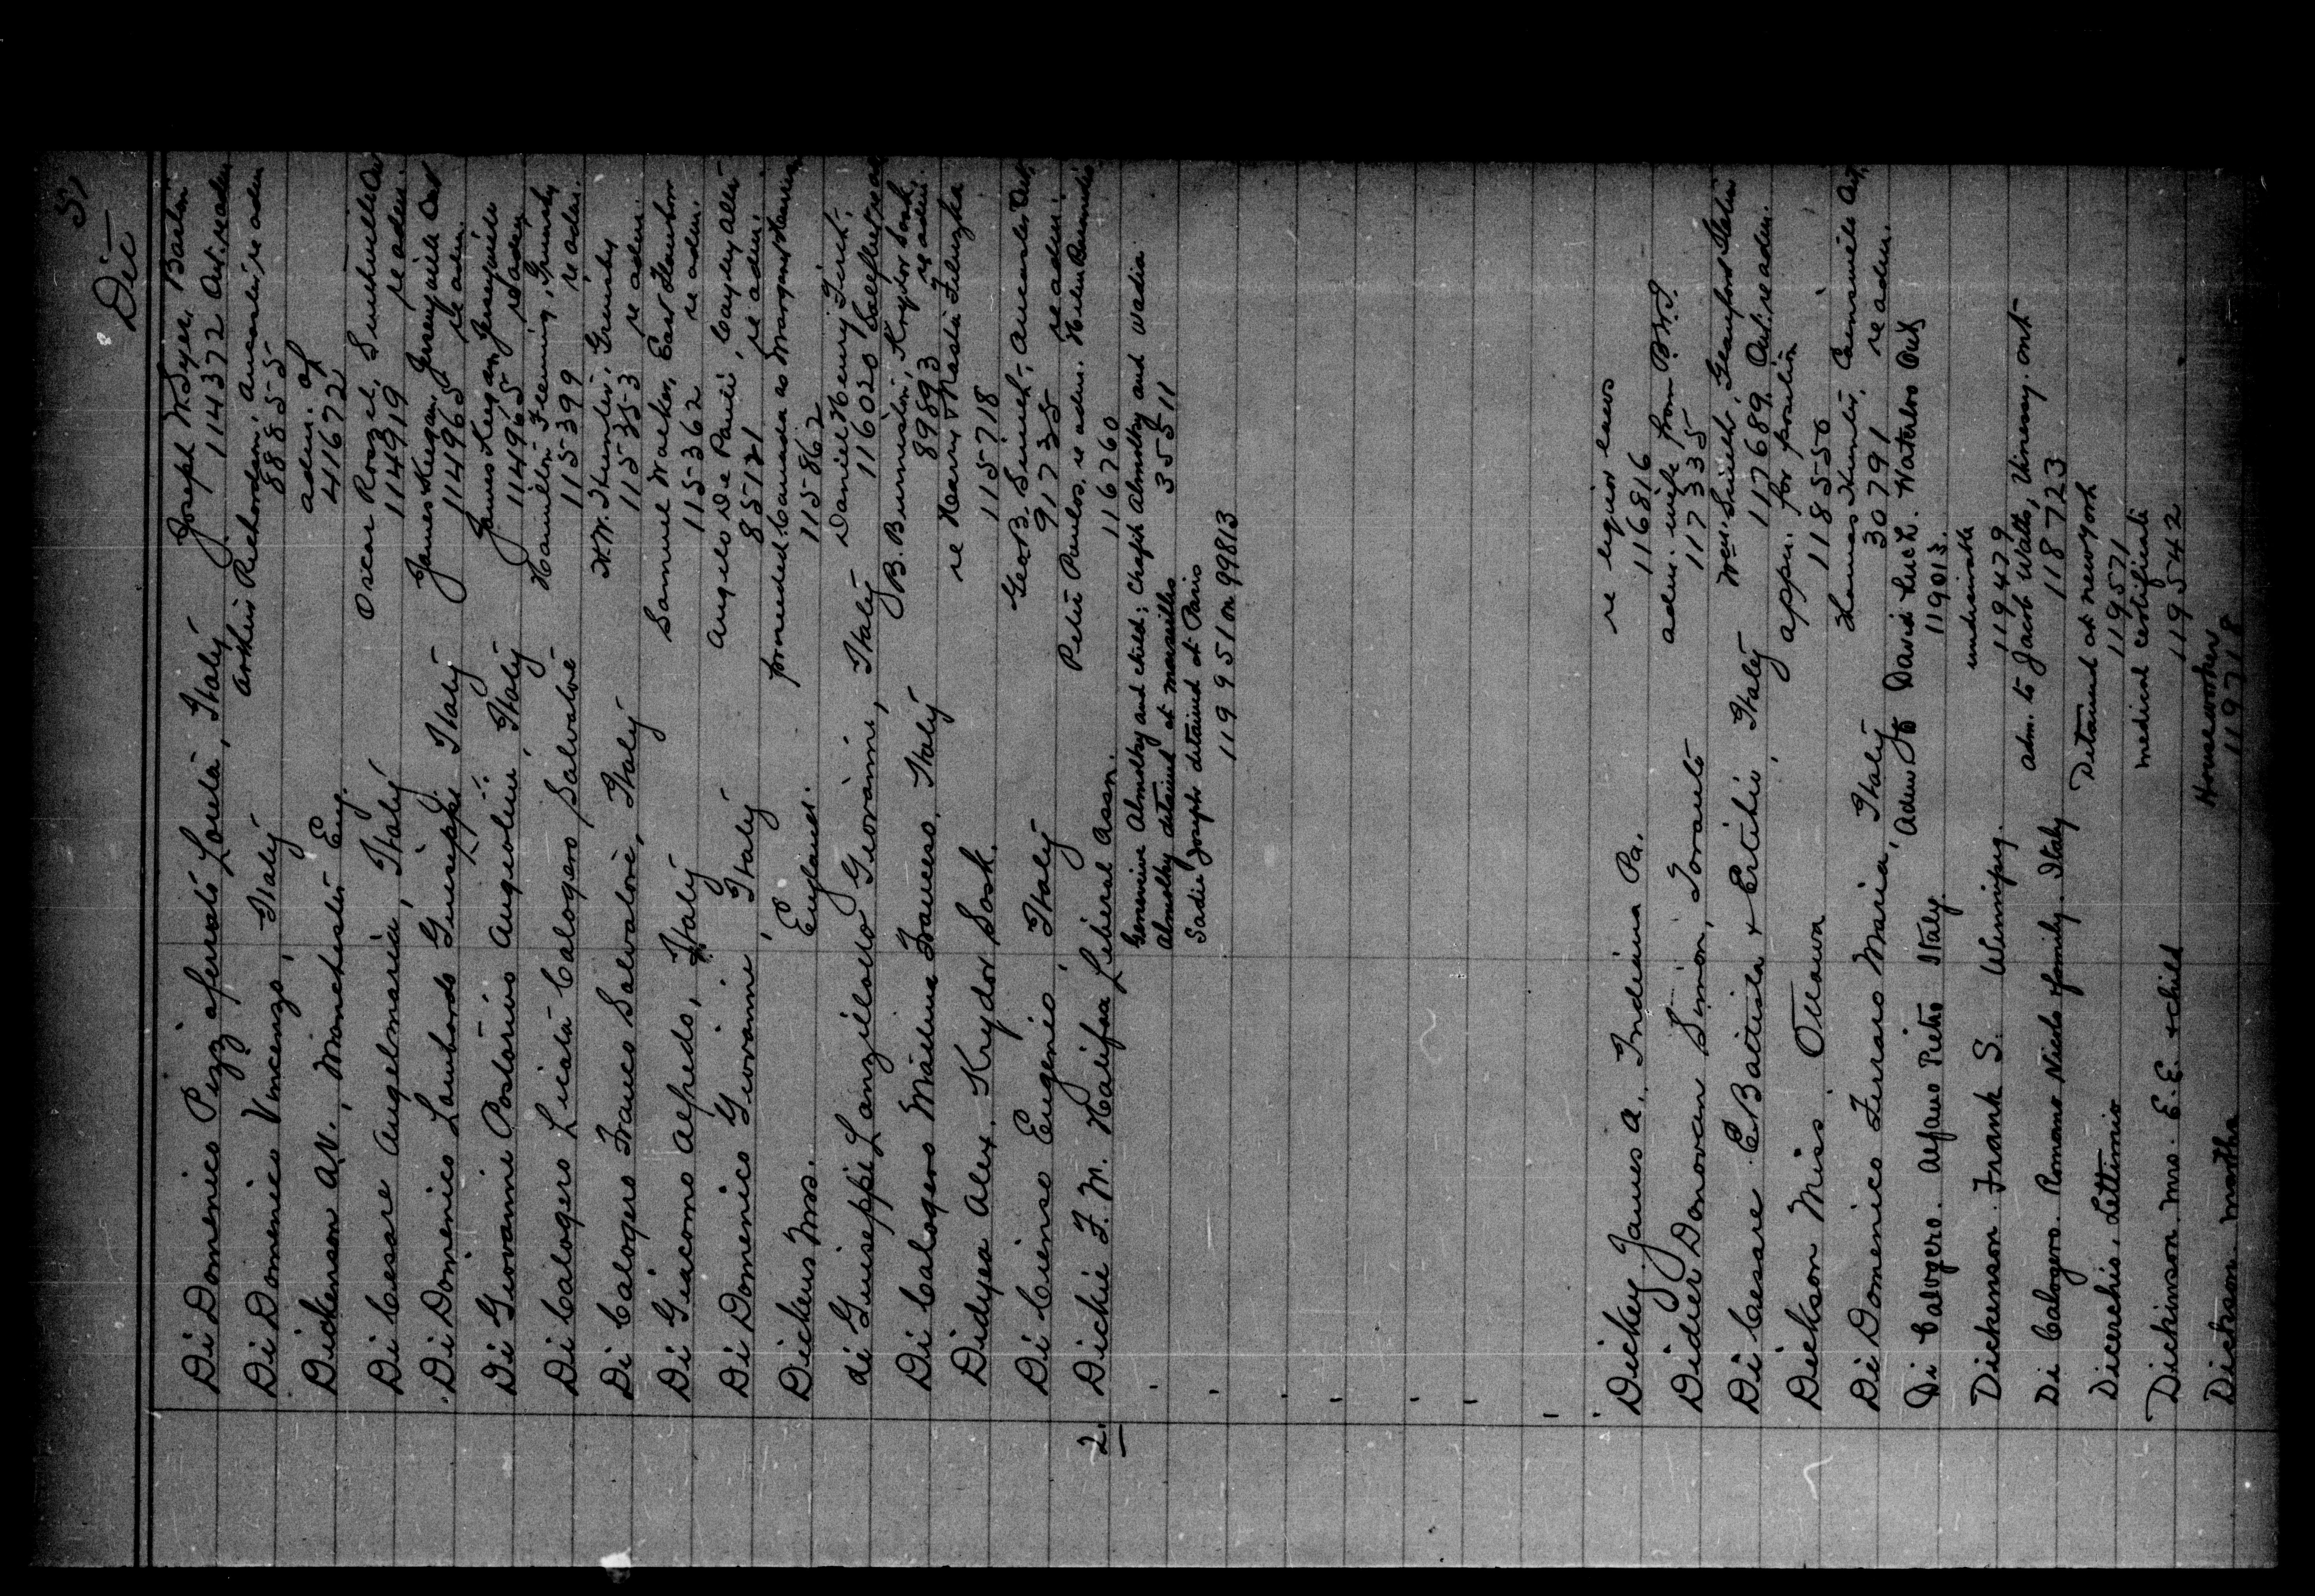 51
Dic
Di Domenico Pizz aferrato Loreta, Italy Joseph W. Syer, Barton
114372 Ont. re adm
Di Domenico Vincenzo, Italy Arthur Richardson, Ancaster, re adm
88855
Dickenson A.N., Manchester Eng. adm. of
41672
Di Cesare Angelmaria, Italy Oscar Roszel, Smithville Ont
114919 re adm.
Di Domenico Lombardo Giuseppe Italy James Keegan, Jerseyville Ont
114965 re adm.
Di Giovanni Postorius Angeolini, Italy James Keegan Jerseyville
114965 re adm
Di Calogero Licata Calogero Salvatore Hamilton Fleming, Grimsby
115399 re adm.
Di Calogero Franco Salvatore, Italy H.W. Hunter, Grimsby
115353 re adm.
Di Giacomo Alfredo, Italy Samuel Walker, East Flamboro
115362 re adm.
Di Domenico Giovanni, Italy Angelo De Paul, Cayley Alta
85121 re adm.
Dickens Mrs. England. proceeded Canada as Margaret
115862
di Guiseppe Lanzillotto Giovanni, Italy Daniel Henry
116020
Di Calogero Francesco, Italy B. Burmister, Krydor Sask,
89893 re adm.
Didyea Alex. Krydor Sask. re Harry Nasta
115718
Di Cienso Eugenio, Italy Geo B. Smith, Ancaster Ont,
91735 re adm.
2. Dickie F. M. Halifax Liberal Assn. Peter Paulos, re adm. Helen
116760
Genevieve Almolky and child; Chafik Almolky and Wadia
Almolky detained at Marseilles 35511
Sadie Joseph detained at Paris
119951 or 99813
Dickey James A., Indiana Pa. re liquor laws
116816
Didier Donovan Simon, Toronto adm. wife from B.W.I.
117335
Di Cesare E Battista & Ercilio, Italy Wm Smith, Glanford Station
117689 Ont. re adm.
Dickson Miss Ottawa appn. for position
118556
Di Domenico Ferraro Maria, Italy Thomas Hunter, Cainsville Ont,
30791 re adm.
Di Calogero. Alfano Pietro Italy Adm to David Luck. Waterloo Ont
119013.
Dickenson Frank S. Winnipeg. undesirable
119479
Di Calogero. Romano Nicolo & family. Italy adm. to Jacob Watts, Vinemay. ont
118723
Dicerchio, Lettimio Detained at New York
119571
Dickinson Mrs. E.E. & child medical certificate
119542
Dickson Martha Houseworker
119718